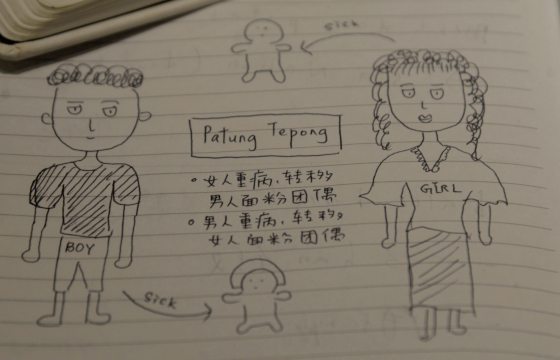 sick
Patung Tepong
• 女人重病，转移
男人面粉团偶
• 男人重病，转移
女人面粉团偶
GIRL
BOY
sick